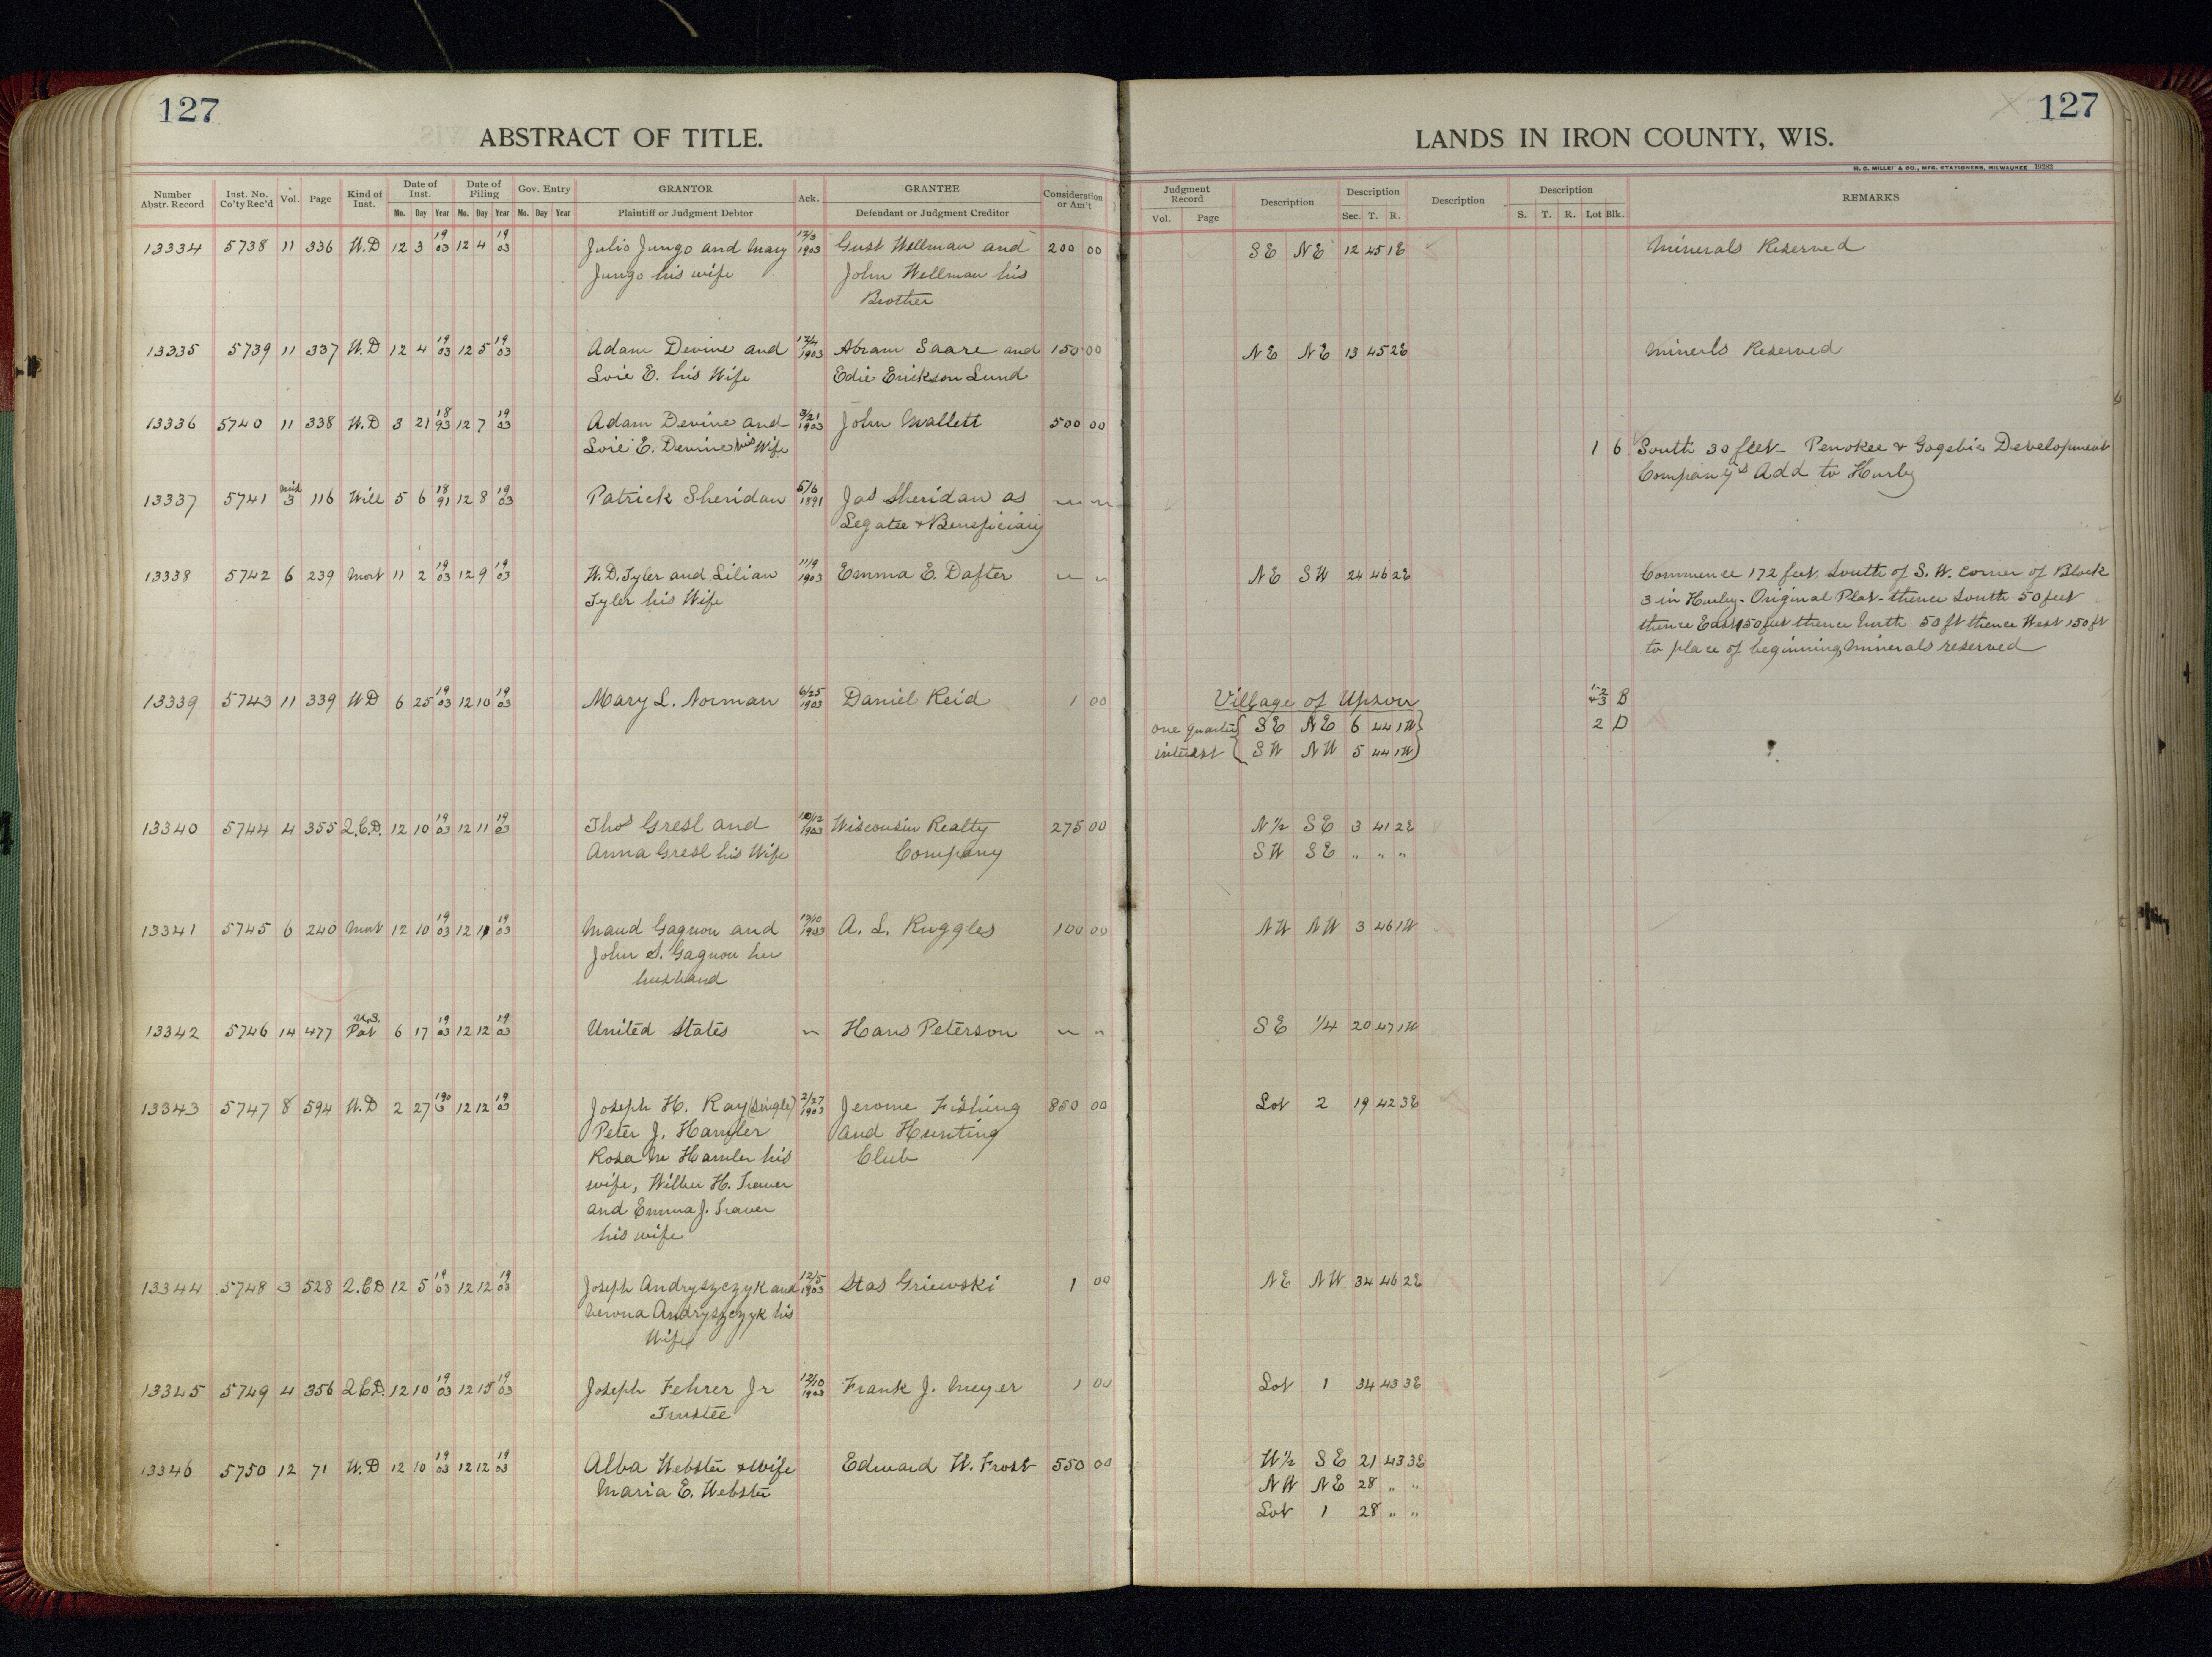 127
127
ABSTRACT OF TITLE.
LANDS IN IRON COUNTY, WIS.
H. C. MILLER & CO., MFG. STATIONERS, MILWAUKEE 19282
Number Abstr. Record Inst. No. Co'ty Rec'd Vol. Page Kind of Inst. Date of Inst. Date of Filing Gov. Entry GRANTOR Ack. GRANTEE Consideration or Am't Judgment Record Description Description Description Description REMARKS
Mo. Day Year Mo. Day Year Mo. Day Year Plaintiff or Judgment Debtor Defendant or Judgment Creditor Vol. Page Sec. T. R. S. T. R. Lot Blk.
13334 5738 11 336 W.D 12 3 19 03 12 4 19 03 Julio Jungo and Mary 12/3 1903 Gust Wellman and 200 00 SE NE 12 45 1E Minerals Reserved
Jungo his wife John Wellman his
Brother
13335 5739 11 337 W.D 12 4 19 03 12 5 19 03 Adam Devine and 12/4 1903 Abram Saare and 150 00 NE NE 13 45 2E Minerls Reserved
Loie E. his Wife Edie Erickson Lund
13336 5740 11 338 W.D 3 21 18 93 12 7 19 03 Adam Devine and 3/21 1903 John Mallett 500 00
Loie E. Devine his Wife 1 6 South 30 feet - Penokee & Gogebic Development
Company's Add to Hurley
13337 5741 Mis 3 116 Will 5 6 18 91 12 8 19 03 Patrick Sheridan 5/6 1891 Jas Sheridan as
Legatee & Beneficiary
13338 5742 6 239 Mort 11 2 19 03 12 9 19 03 W.D. Tyler and Lilian 11/9 1903 Emma E. Dafter NE SW 24 46 2E Commence 172 feet South of S.W. corner of Block
Tyler his Wife 3 in Hurley - Original Plat - thence South 50 feet
thence East 150 feet thence North 50 ft thence West 150 ft
to place of beginning, Minerals reserved
13339 5743 11 339 WD 6 25 19 03 12 10 19 03 Mary L. Norman 6/25 1903 Daniel Reid 1 00 Village of Upson 1-2 4-3 B
one quarter { SE NE 6 44 1W } 2 D
interest { SW NW 5 44 1W )
13340 5744 4 355 Q.C.D. 12 10 19 03 12 11 19 03 Thos Gresl and 10/12 1903 Wisconsin Realty 275 00 N½ SE 3 41 2E
Anna Gresl his Wife Company SW SE " " "
13341 5745 6 240 Mort 12 10 19 03 12 11 19 03 Maud Gagnon and 12/10 1903 A. L. Ruggles 100 00 NW NW 3 46 1W
John S. Gagnon her
husband
13342 5746 14 477 U.S. Pat 6 17 19 03 12 12 19 03 United States Hans Peterson SE 1/4 20 47 1W
13343 5747 8 594 W.D 2 27 190 3 12 12 19 03 Joseph H. Ray (single) 2/27 1903 Jerome Fishing 850 00 Lot 2 19 42 3E
Peter J. Hamler and Hunting
Rosa M Hamler his Club
wife, Wilbur H. Traver
and Emma J. Traver
his wife
13344 5748 3 528 Q.C.D 12 5 19 03 12 12 19 03 Joseph Andryszczyk and 12/5 1903 Stas Griewski 1 00 NE NW 34 46 2E
Verona Andryszczyk his
Wife
13345 5749 4 356 Q.C.D. 12 10 19 03 12 15 19 03 Joseph Fehrer Jr 12/10 1903 Frank J. Meyer 1 00 Lot 1 34 43 3E
Trustee
13346 5750 12 71 W.D 12 10 19 03 12 12 19 03 Alba Webster & Wife Edward W. Frost 550 00 W½ SE 21 43 3E
Maria E. Webster NW NE 28 " "
Lot 1 28 " "